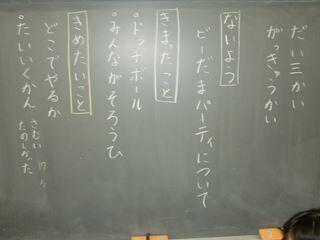 だい三かい
がっきゅうかい
ないよう
ビーだまパーティについて
きまったこと
。ドッチボール
。みんながそろうひ
きめたいこと
どこでやるか
。たいいくかん
さむい
たのしかった